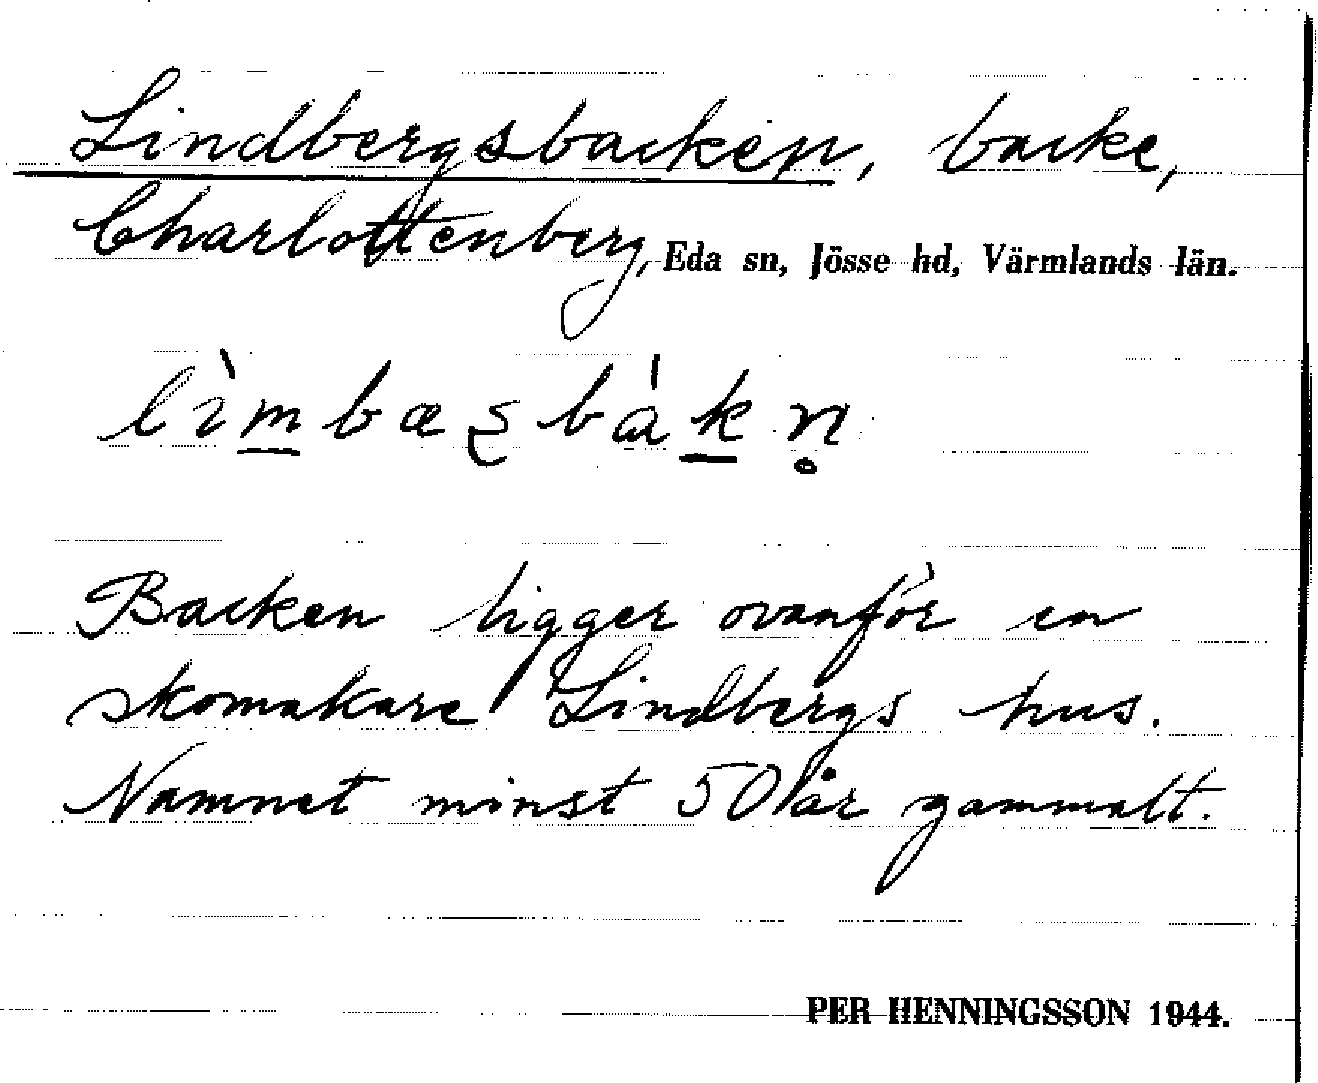 Lindbergsbacken, backe,
Charlottenberg, Eda sn, Jösse hd, Värmlands län.
lìm̲bæʂbàk̲n̥
Backen ligger ovanför en
skomakare Lindbergs hus.
Namnet minst 50 år gammalt.
PER HENNINGSSON 1944.